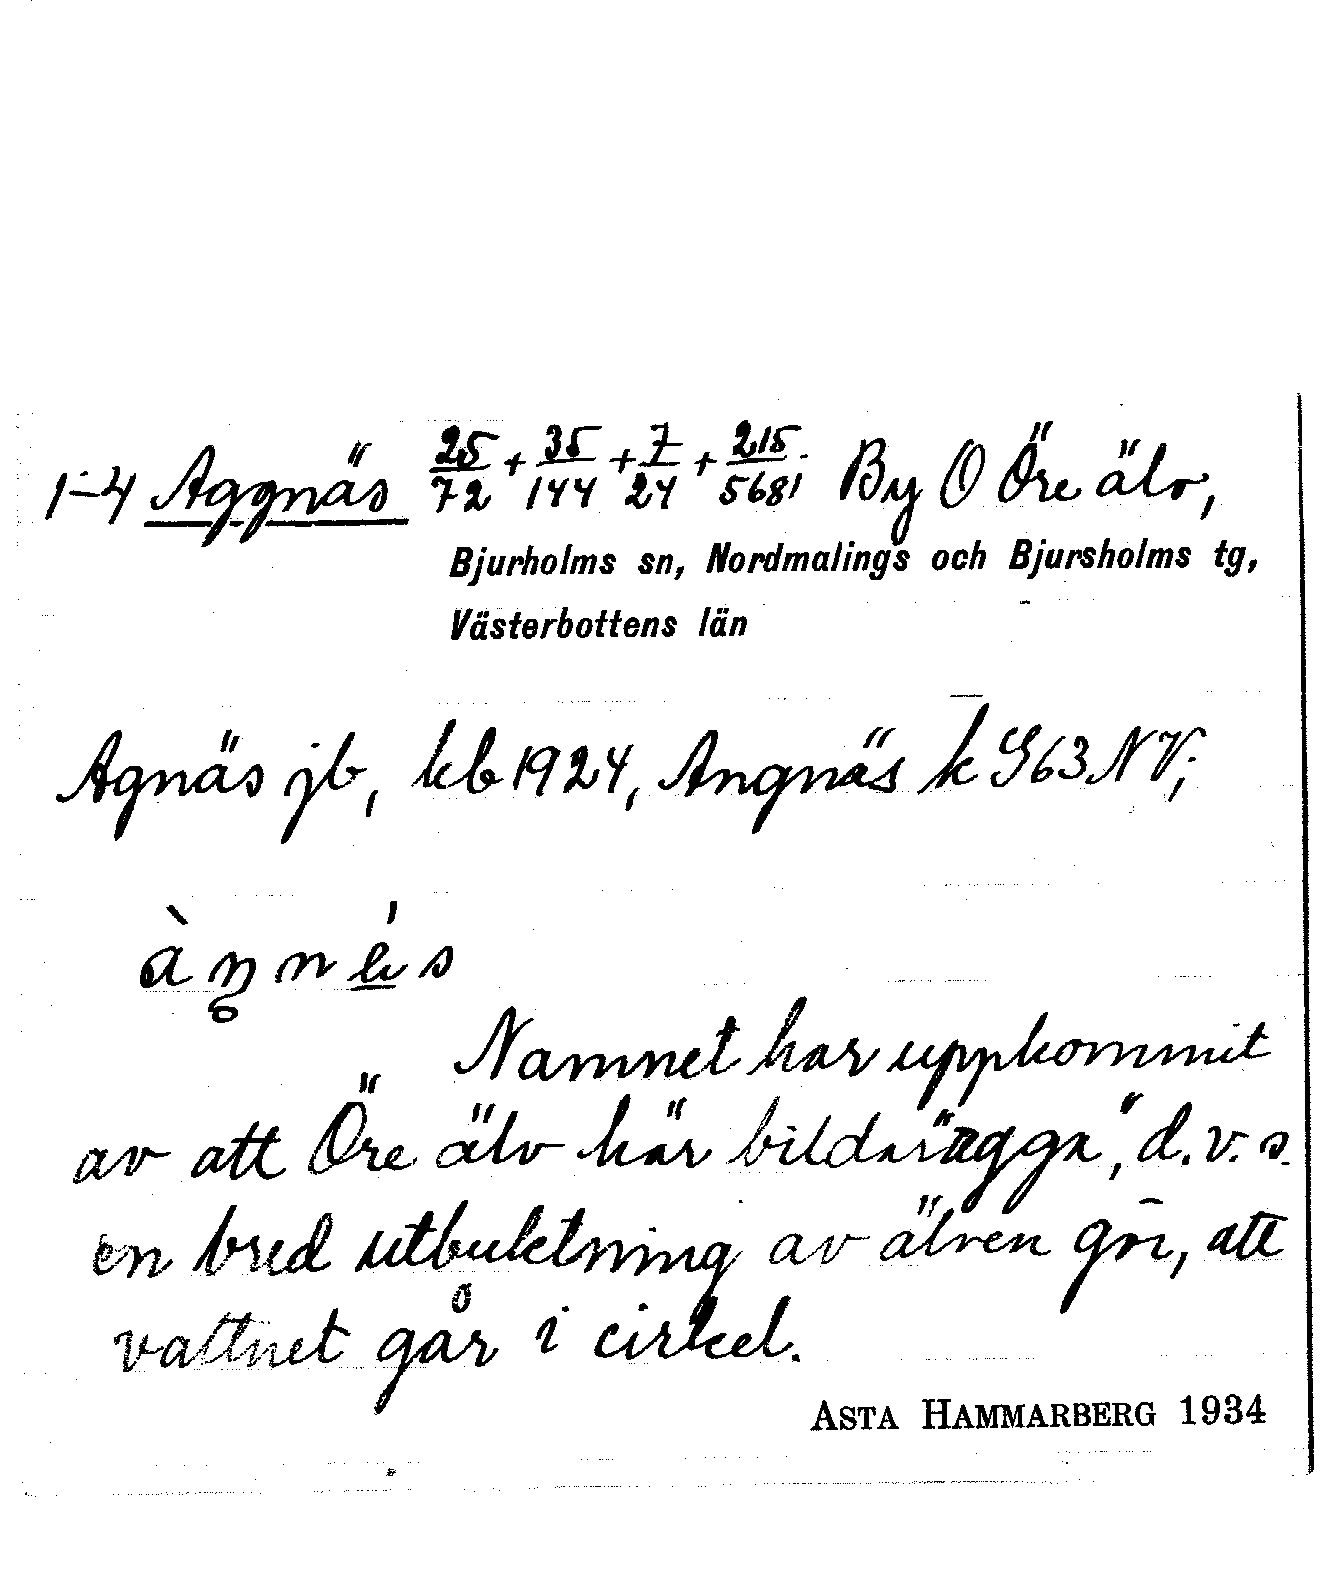 1-4 Aggnäs 25/72 + 35/144 + 7/24 + 215/5681 By O Öre älv,
Bjurholms sn, Nordmalings och Bjursholms tg,
Västerbottens län
Agnäs jb, kb 1924, Angnäs k G63 NV;
Namnet har uppkommit
av att Öre älv här bildar "agga", d.v.s.
en bred utbuktning av älven gör, att
vattnet går i cirkel.
ASTA HAMMARBERG 1934